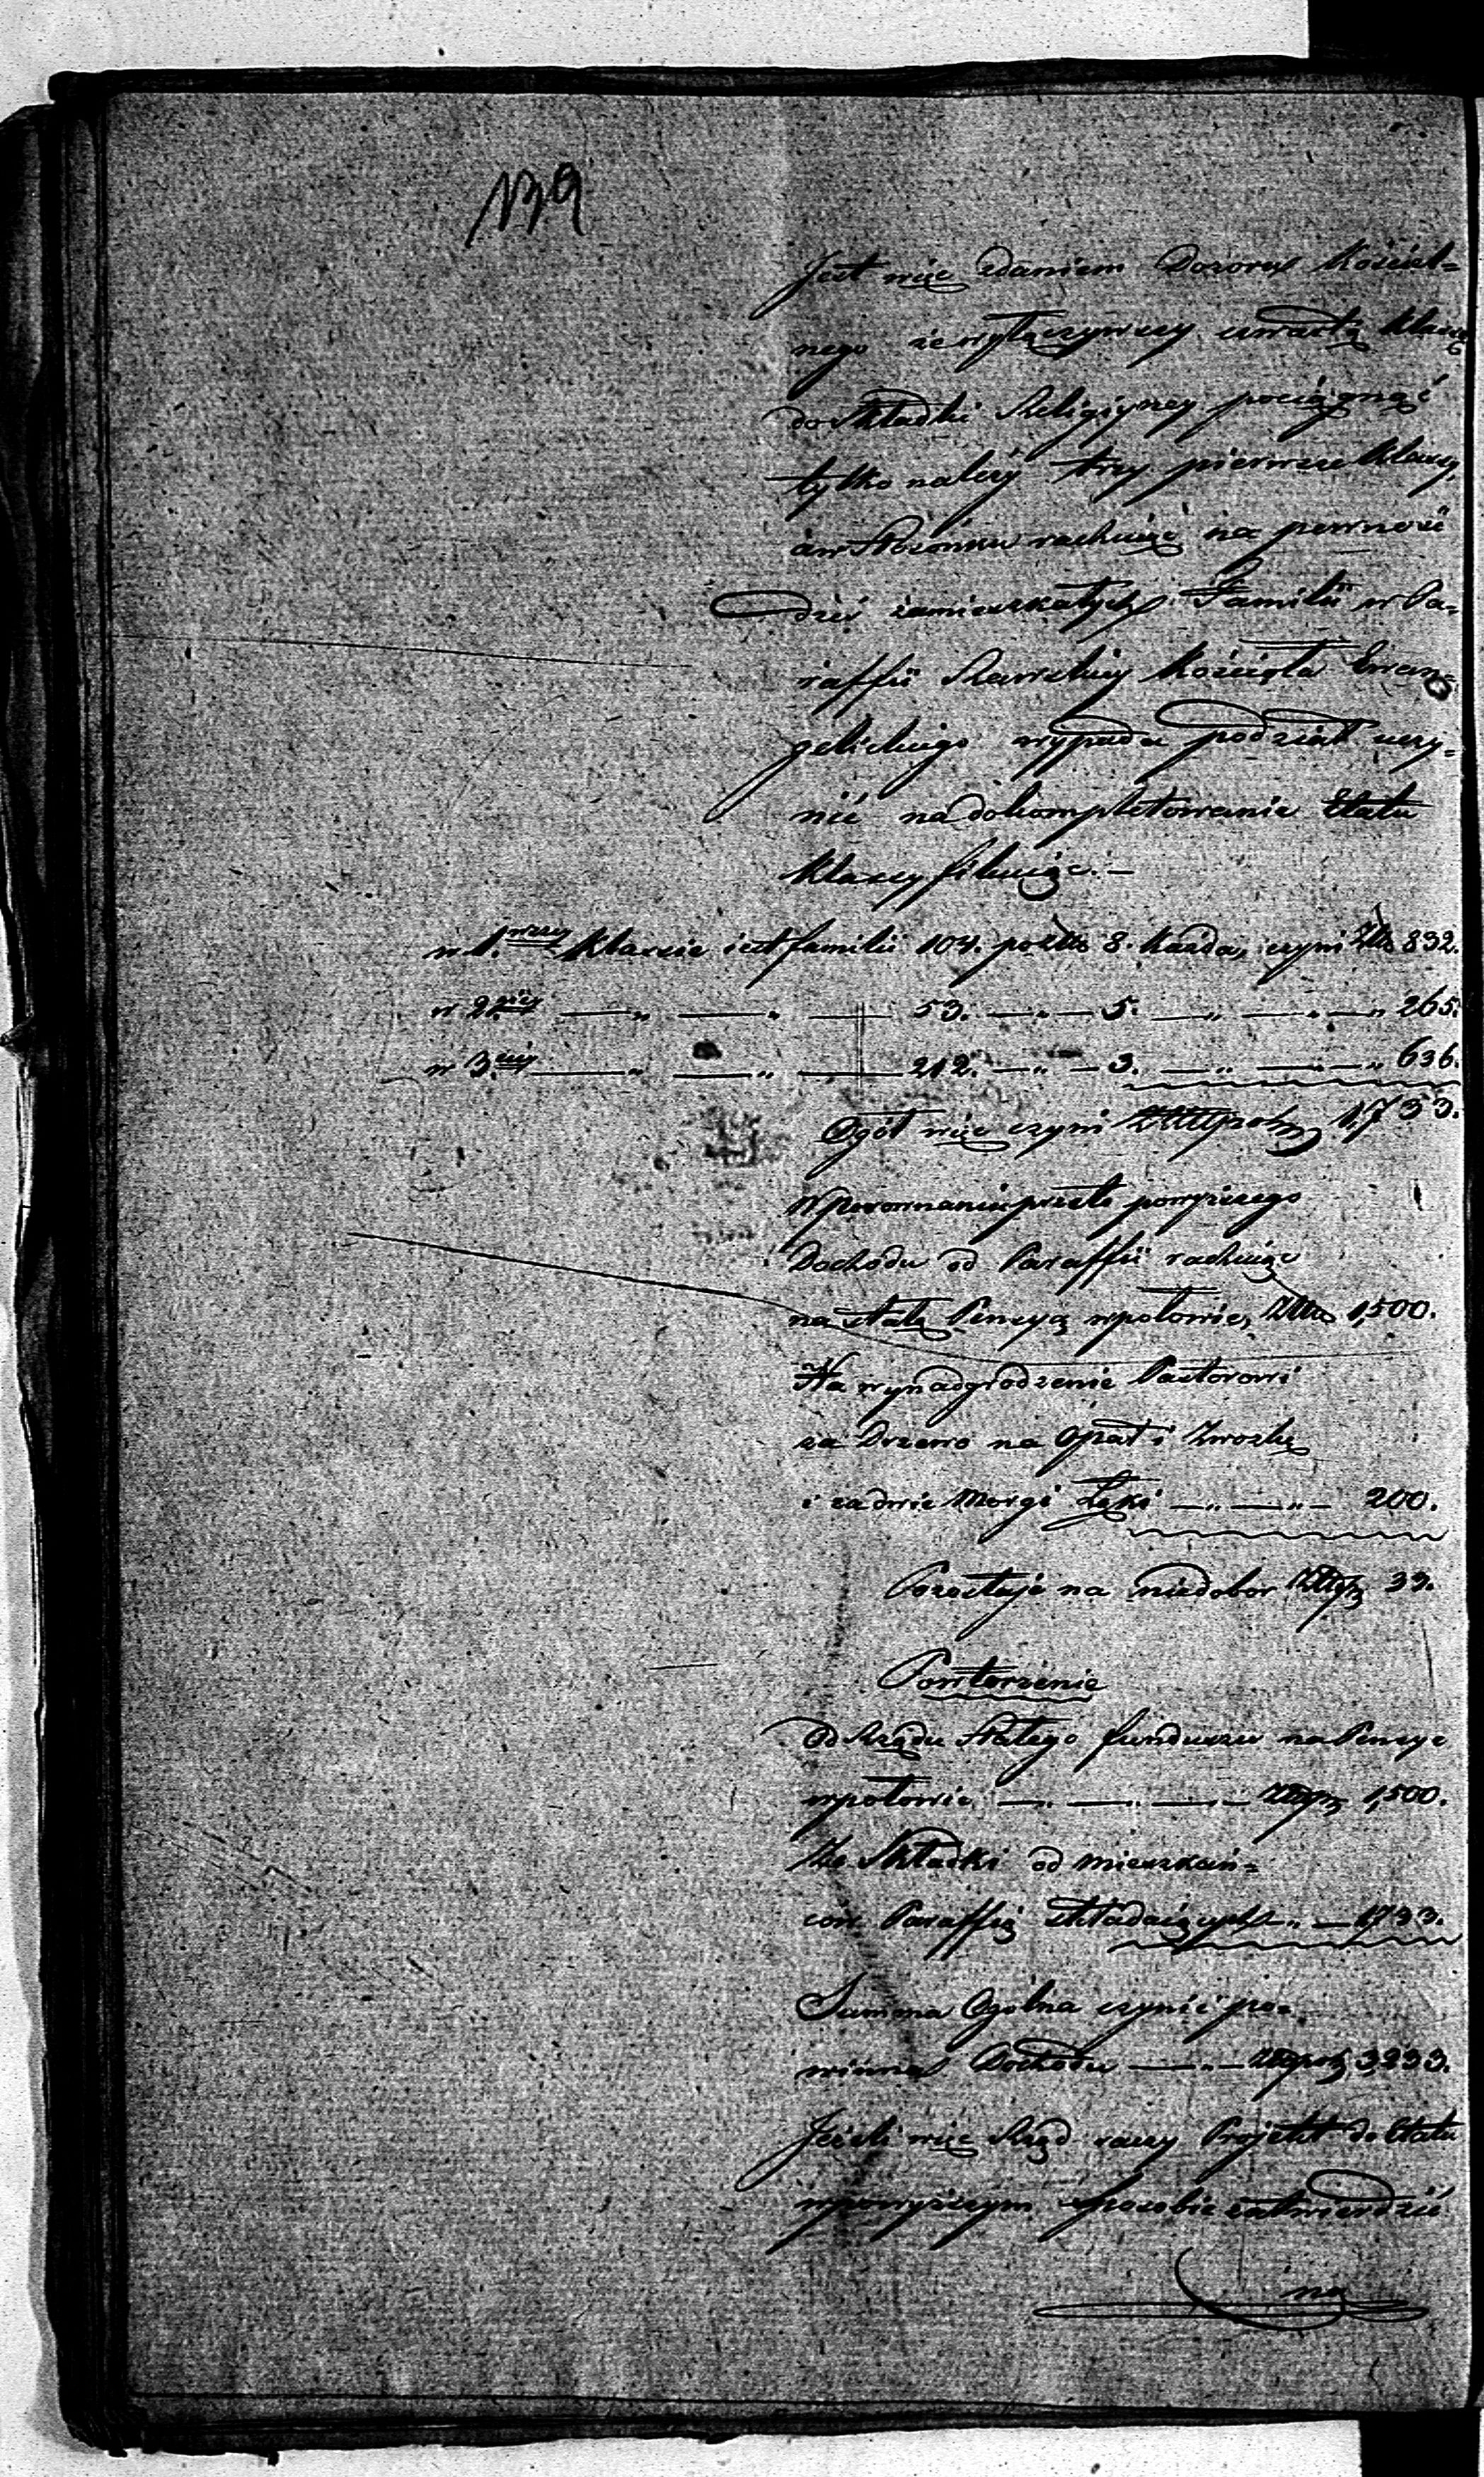 139
Jest więc zdaniem Dozoru Kościel=
nego że wyłączywszy czwartą Klassę
do Składki Religijney pociągnąć
tylko należy trzy pierwsze Klassy,
a w Stosunku rachuiąc na pewność
dziś zamieszkałych Familii w Pa=
raffii Rawskiey Kościoła Ewan=
gelickiego wypada podział uczy=
nić na dokompletowanie Etatu
Klassyfikuiąc. —
w 1.wszey Klassie iest familii 104. po złto 8. Każda, czyni Złto 832.
w 2.giey —„ — „ — 53. —„— 5. —„ —„—„ 265.
w 3.ciey —„ — „ — 212. —„— 3. —„ —„—„ 636.
Ogół więc czyni Złłpol 1,733.
W porownaniu przeto powyższego
Dochodu od Paraffii rachuiąc
na stałą Pensyą w połowie, Złto 1,500.
Na wynadgrodzenie Pastorowi
za Drzewo na Opał i Zwozkę
i za dwie Morgi Łąki —„ —„— 200.
Pozostaje na niedobor Złłp 33.
Powtorzenie
Od Rządu Stałego funduszu na Pensye
w połowie —„ —„ —„— Złłp 1,500.
Ze Składki od mieszkań=
cow Paraffią składaiących „ — 1,733.
Summa Ogólna czynić po=
winna Dochodu —„— Złłpol 3,233.
Jeżeli więc Rząd raczy Projekt do Etatu
w powyższym sposobie zatwierdzić
na